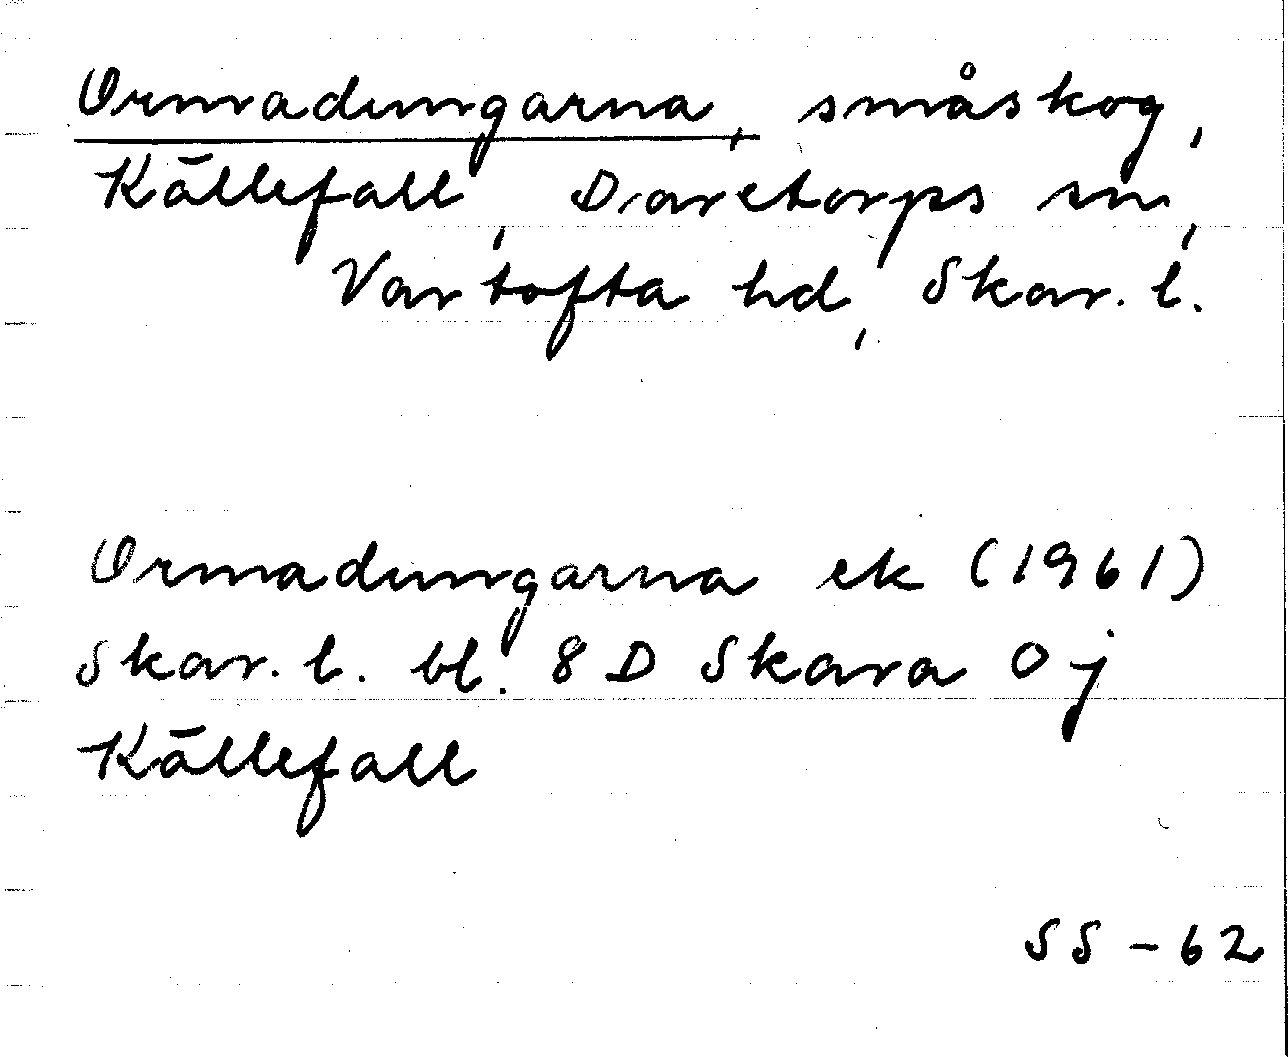 Ormadungarna, småskog,
Källefall, Daretorps sn,
Vartofta hd, Skar. l.
Ormadungarna ek (1961)
Skar. l. bl. 8 D Skara 0 j
Källefall
SS - 62